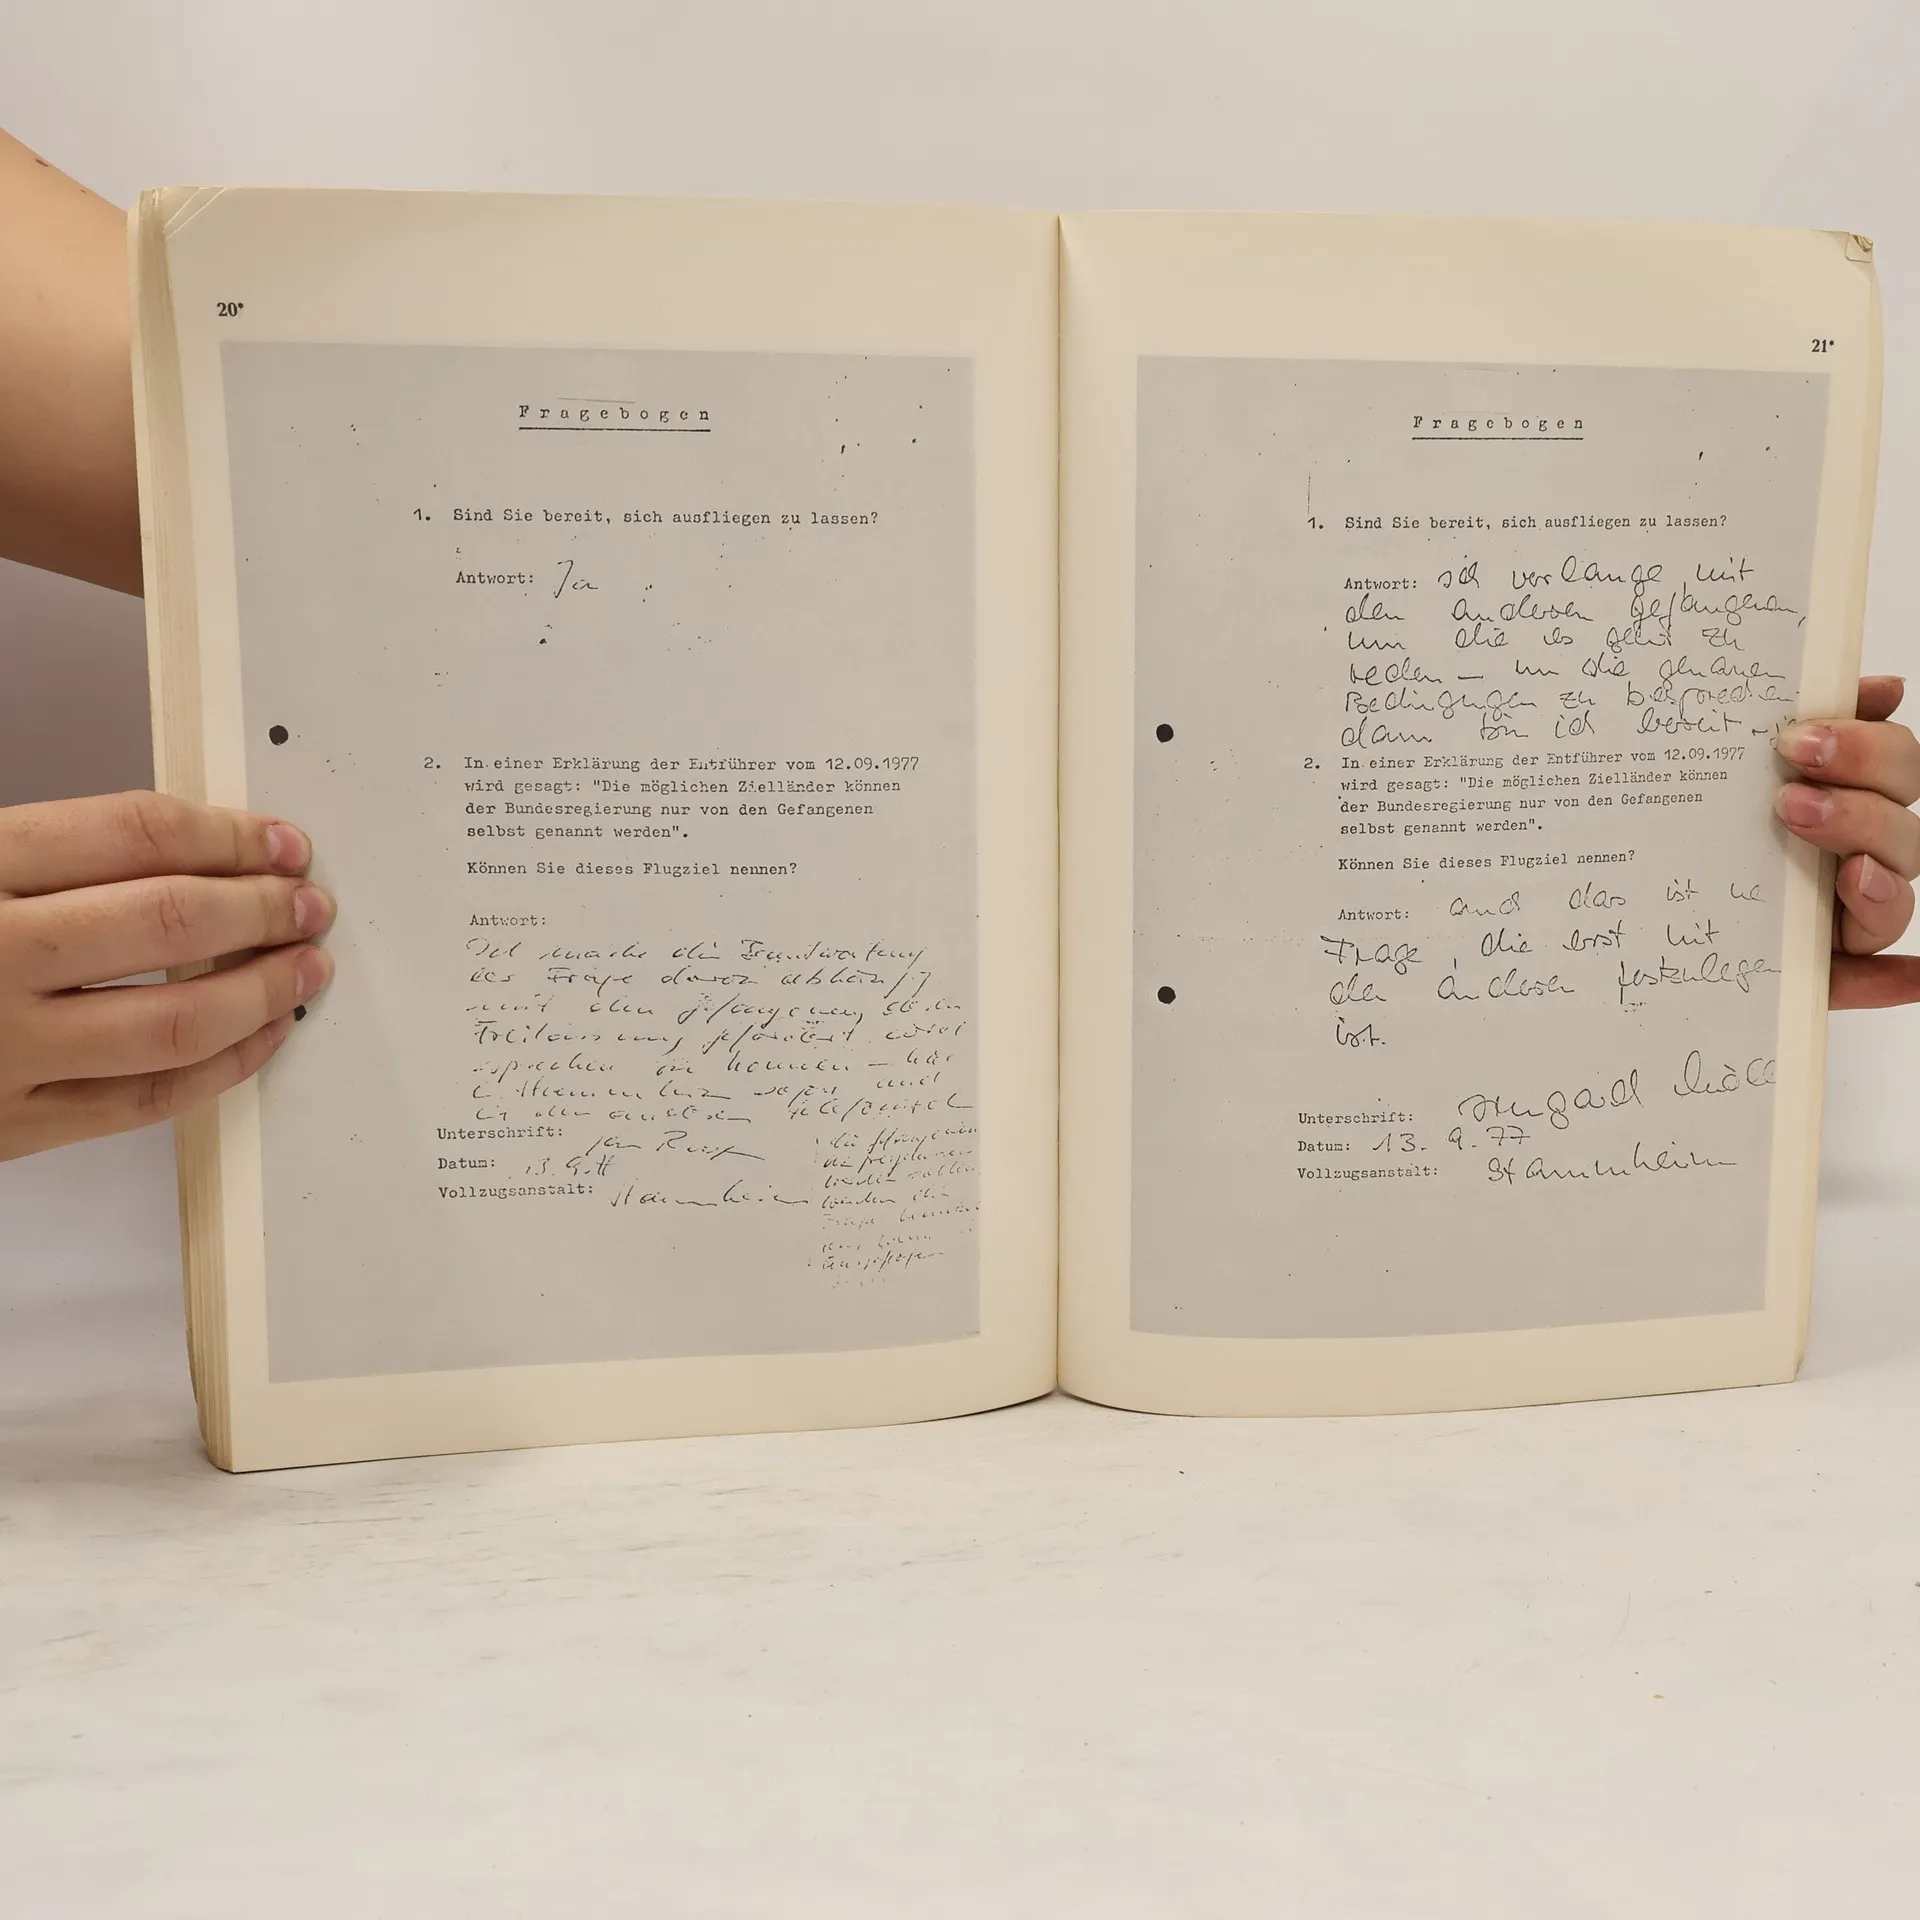 20*
Fragebogen
1. Sind Sie bereit, sich ausfliegen zu lassen?
Antwort: Ja
2. In einer Erklärung der Entführer vom 12.09.1977
wird gesagt: "Die möglichen Zielländer können
der Bundesregierung nur von den Gefangenen
selbst genannt werden".
Können Sie dieses Flugziel nennen?
Antwort:
Ich mache die Beantwortung
der Frage davon abhängig
mit den gefangenen, deren
Freilassung gefordert wird
sprechen zu können – hier
in Stammheim sofort und
Unterschrift: Jan Raspe
Datum: 13.9.77
Vollzugsanstalt: Stammheim
21*
Fragebogen
1. Sind Sie bereit, sich ausfliegen zu lassen?
Antwort: ich verlange mit
den anderen gefangenen,
um die es geht zu
reden – um die genauen
Bedingungen zu besprechen
dann bin ich bereit
2. In einer Erklärung der Entführer vom 12.09.1977
wird gesagt: "Die möglichen Zielländer können
der Bundesregierung nur von den Gefangenen
selbst genannt werden".
Können Sie dieses Flugziel nennen?
Antwort: auch das ist ne
Frage, die erst mit
den anderen festzulegen
ist.
Unterschrift: Irmgard Möll
Datum: 13.9.77
Vollzugsanstalt: Stammheim